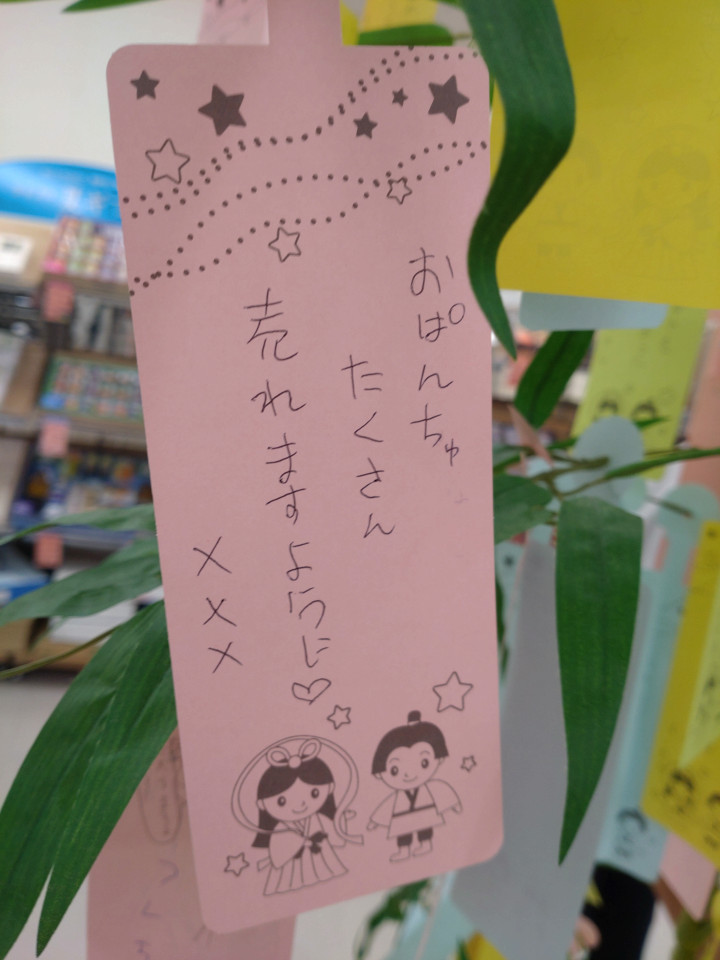 おぱんちゅ
たくさん
売れますように♡
×××